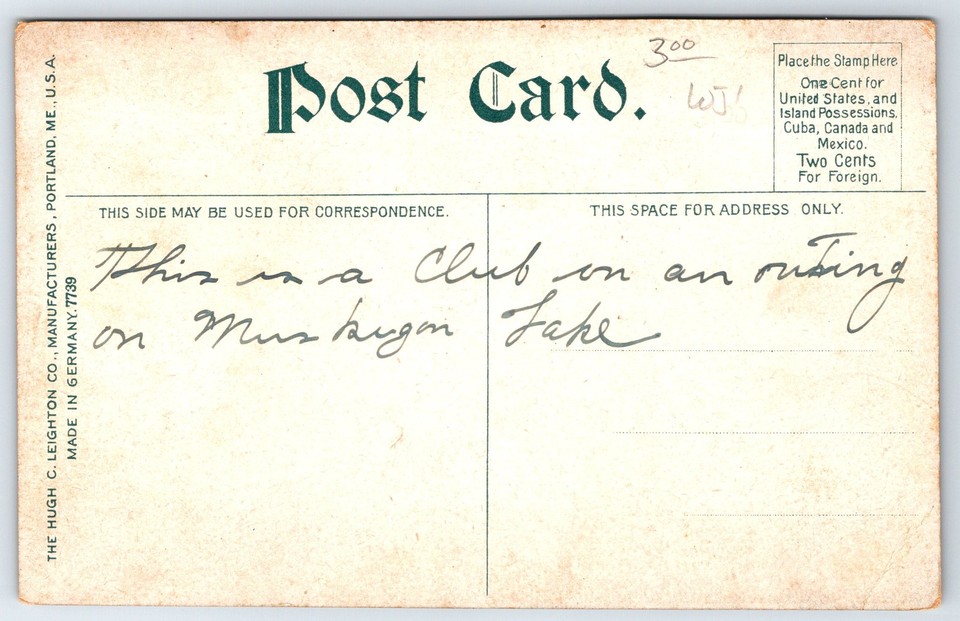 3.00
Post Card.
WJ!
Place the Stamp Here
One Cent for
United States, and
Island Possessions.
Cuba, Canada and
Mexico.
Two Cents
For Foreign.
THIS SIDE MAY BE USED FOR CORRESPONDENCE.
THIS SPACE FOR ADDRESS ONLY.
This is a Club on an outing
on Muskegon Lake
THE HUGH C. LEIGHTON CO., MANUFACTURERS, PORTLAND, ME., U.S.A.
MADE IN GERMANY. 7739